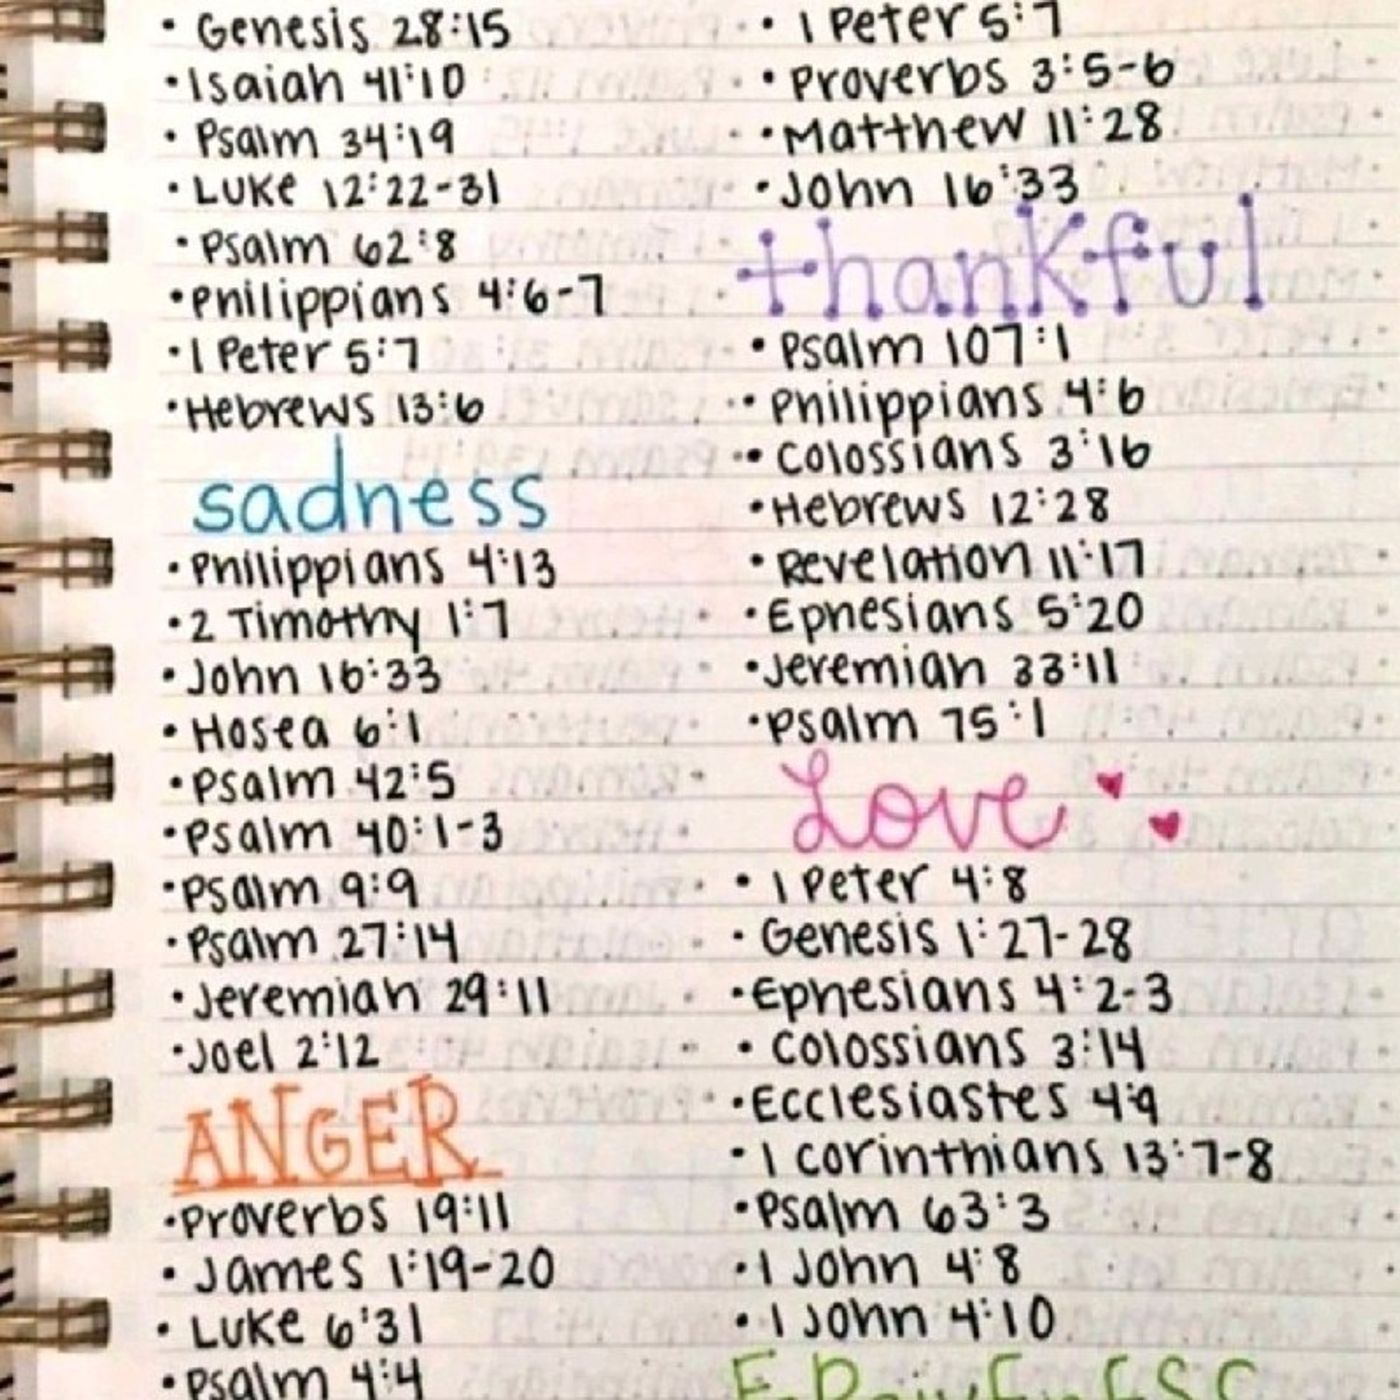 • Genesis 28:15
• Isaiah 41:10
• Psalm 34:19
• Luke 12:22-31
• Psalm 62:8
• Philippians 4:6-7
• 1 Peter 5:7
• Hebrews 13:6
sadness
• Philippians 4:13
• 2 Timothy 1:7
• John 16:33
• Hosea 6:1
• Psalm 42:5
• Psalm 40:1-3
• Psalm 9:9
• Psalm 27:14
• Jeremiah 29:11
• Joel 2:12
ANGER
• Proverbs 19:11
• James 1:19-20
• Luke 6:31
• Psalm 4:4
• 1 Peter 5:7
• Proverbs 3:5-6
• Matthew 11:28
• John 16:33
thankful
• Psalm 107:1
• Philippians 4:6
• Colossians 3:16
• Hebrews 12:28
• Revelation 11:17
• Ephesians 5:20
• Jeremiah 33:11
• Psalm 75:1
Love
• 1 Peter 4:8
• Genesis 1:27-28
• Ephesians 4:2-3
• Colossians 3:14
• Ecclesiastes 4:9
• 1 Corinthians 13:7-8
• Psalm 63:3
• 1 John 4:8
• 1 John 4:10